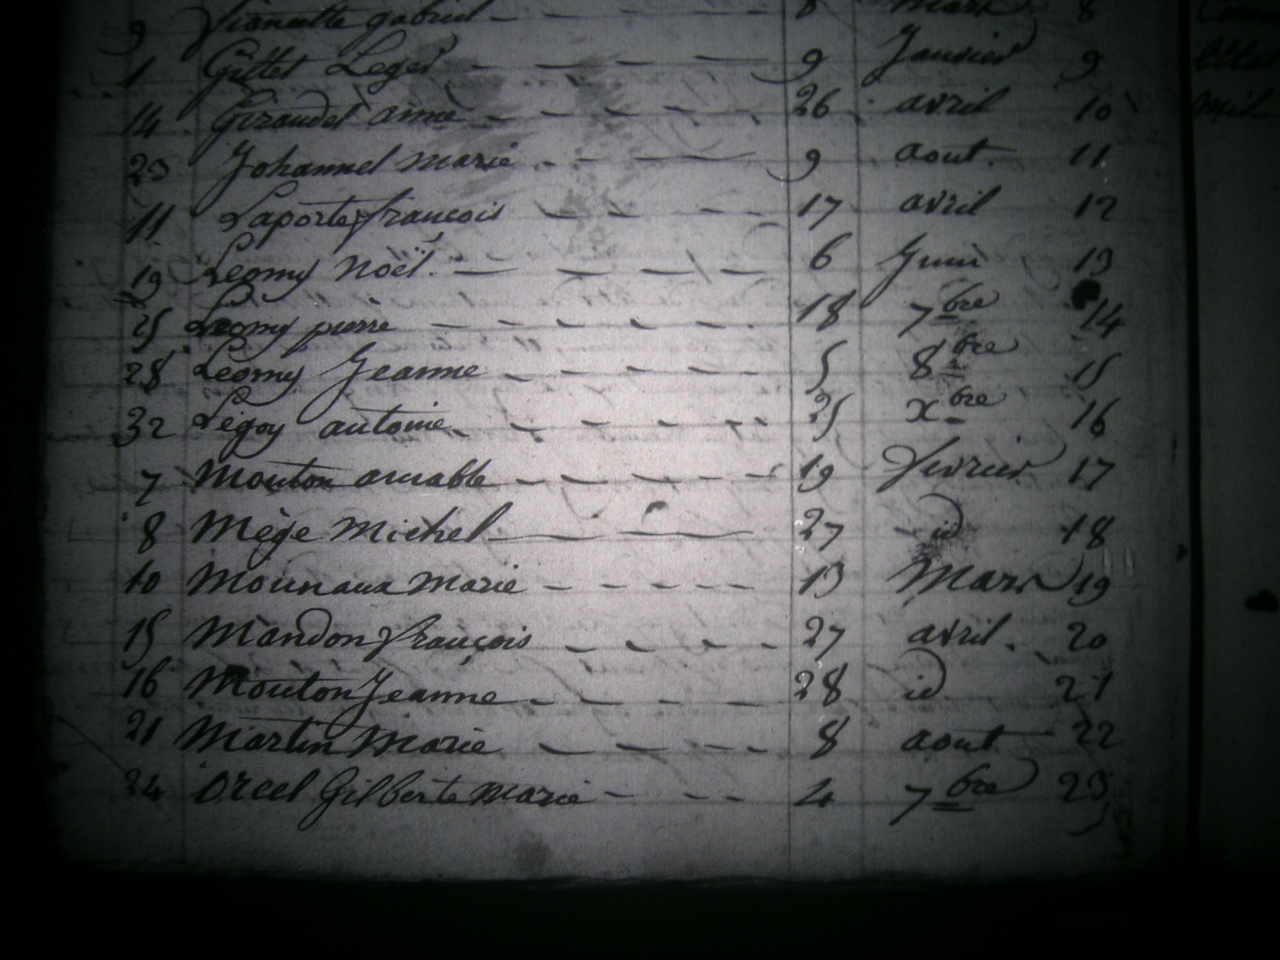 9 gabriel 8 Mars 8
1 Gillet Leger 9 Janvier 9
14 Giraudet anne 26 avril 10
23 Johannel Marie 9 aout 11
11 Laporte françois 17 avril 12
19 Leomy Noël 6 Juin 13
25 Leomy pierre 18 7bre 14
28 Leomy Jeanne 5 8bre 15
32 Legoy antoine 25 xbre 16
7 Mouton amable 19 fevrier 17
8 Mège Michel 27 id 18
10 Mounaux Marie 13 Mars 19
15 Mandon françois 27 avril 20
16 Mouton Jeanne 28 id 21
21 Martin Marie 8 aout 22
24 Orcel Gilberte Marie 4 7bre 23